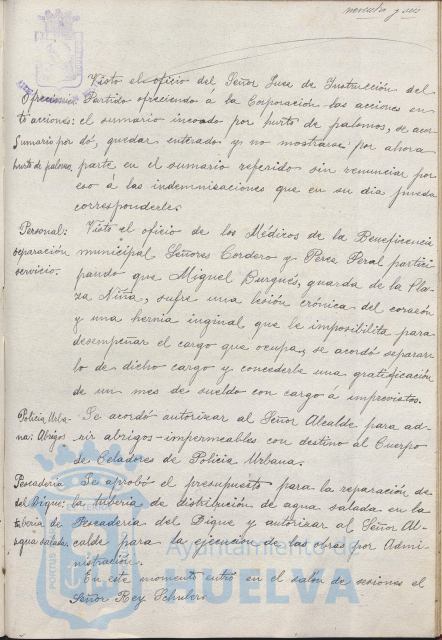 noventa y seis
Visto el oficio del Señor Juez de Instrucción del
Ofrecimien- Partido ofreciendo á la Corporación las acciones en
to acciones: el sumario incoado por hurto de palomas, se acor
Sumario por dó, quedar enterado y no mostrarse por ahora
hurto de palomas, parte en el sumario referido sin renunciar por
eso á las indemnisaciones que en su dia pueda
corresponderle.
Personal: Visto el oficio de los Médicos de la Beneficencia
separación municipal Señores Cordero y Perez Peral partici
servicio. pando que Miguel Burgués, guarda de la Pla-
za Niña, sufre una lesión crónica del corazón
y una hernia inginal que le imposibilita para
desempeñar el cargo que ocupa, se acordó separar
lo de dicho cargo y concederle una gratificación
de un mes de sueldo con cargo á imprevistos.
Policia Urba- Se acordó autorizar al Señor Alcalde para ad-
na: Abrigos rir abrigos-impermeables con destino al Cuerpo
de Celadores de Policia Urbana.
Pescaderia Se aprobó el presupuesto para la reparación de
del Dique: la tuberia de distribución de agua salada en la
tuberia de Pescaderia del Dique y autorizar al Señor Al-
agua salada. calde para la ejecución de las obras por Admi-
nistración.
En este momento entró en el salón de sesiones el
Señor Rey Schulers
Ayuntamiento de
HUELVA